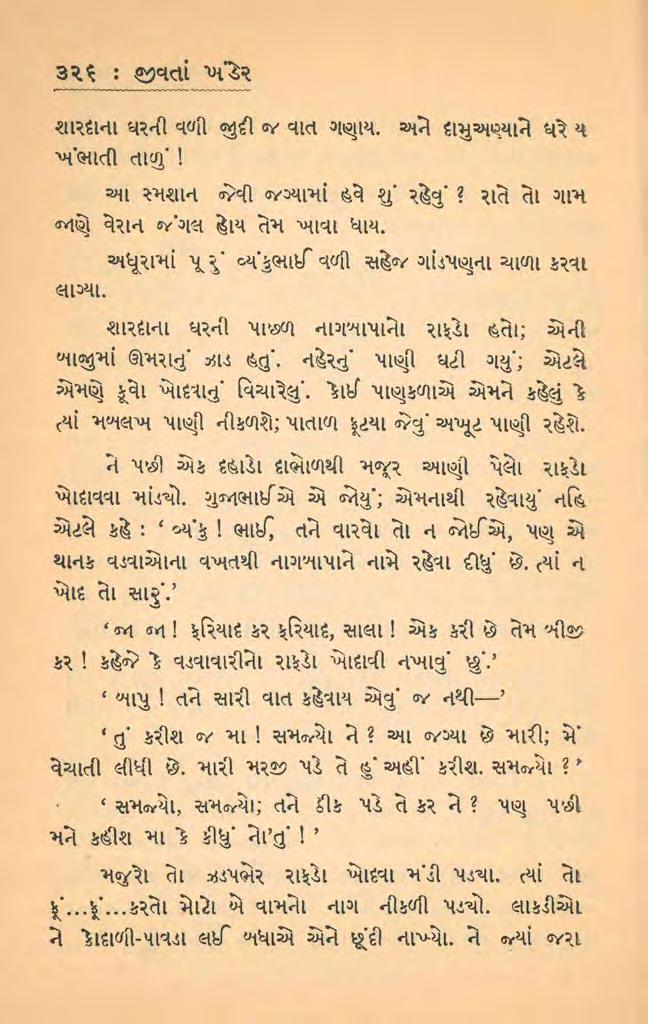 ૩૨૬ : જીવતાં ખંડેર
શારદાના ઘરની વળી જુદી જ વાત ગણાય. અને દામુઅણ્યાને ઘરે ય
ખંભાતી તાળું !
આ સ્મશાન જેવી જગ્યામાં હવે શું રહેવું ? રાતે તો ગામ
જાણે વેરાન જંગલ હોય તેમ ખાવા ધાય.
અધૂરામાં પૂરું વ્યંકુભાઈ વળી સહેજ ગાંડપણના ચાળા કરવા
લાગ્યા.
શારદાના ઘરની પાછળ નાગબાપાનો રાફડો હતો; એની
બાજુમાં ઊમરાનું ઝાડ હતું. નહેરનું પાણી ઘટી ગયું; એટલે
એમણે કૂવો ખોદવાનું વિચારેલું. કોઈ પાણકળાએ એમને કહેલું કે
ત્યાં મબલખ પાણી નીકળશે; પાતાળ ફૂટયા જેવું અખૂટ પાણી રહેશે.
ને પછી એક દહાડો દાભોળથી મજૂર આણી પેલો રાફડો
ખોદાવવા માંડ્યો. ગુજાભાઈએ એ જોયું; એમનાથી રહેવાયું નહિ
એટલે કહે : ‘ વ્યંકુ ! ભાઈ, તને વારવો તો ન જોઈએ, પણ એ
થાનક વડવાઓના વખતથી નાગબાપાને નામે રહેવા દીધું છે. ત્યાં ન
ખોદ તો સારું.’
‘ જા જા ! ફરિયાદ કર ફરિયાદ, સાલા ! એક કરી છે તેમ બીજી
કર ! કહેજે કે વડવાવારીનો રાફડો ખોદાવી નખાવું છું.’
‘ બાપુ ! તને સારી વાત કહેવાય એવું જ નથી—’
‘ તું કરીશ જ મા ! સમજ્યો ને ? આ જગ્યા છે મારી; મેં
વેચાતી લીધી છે. મારી મરજી પડે તે હું અહીં કરીશ. સમજ્યો ?’
‘ સમજ્યો, સમજ્યો; તને ઠીક પડે તે કર ને ? પણ પછી
મને કહીશ મા કે કીધું નો’તું ! ’
મજુરો તો ઝડપભેર રાફડો ખોદવા મંડી પડ્યા. ત્યાં તો
ફૂં...ફૂં...કરતો મોટો બે વામનો નાગ નીકળી પડ્યો. લાકડીઓ
ને કોદાળી-પાવડા લઈ બધાએ એને છૂંદી નાખ્યો. ને જ્યાં જરા